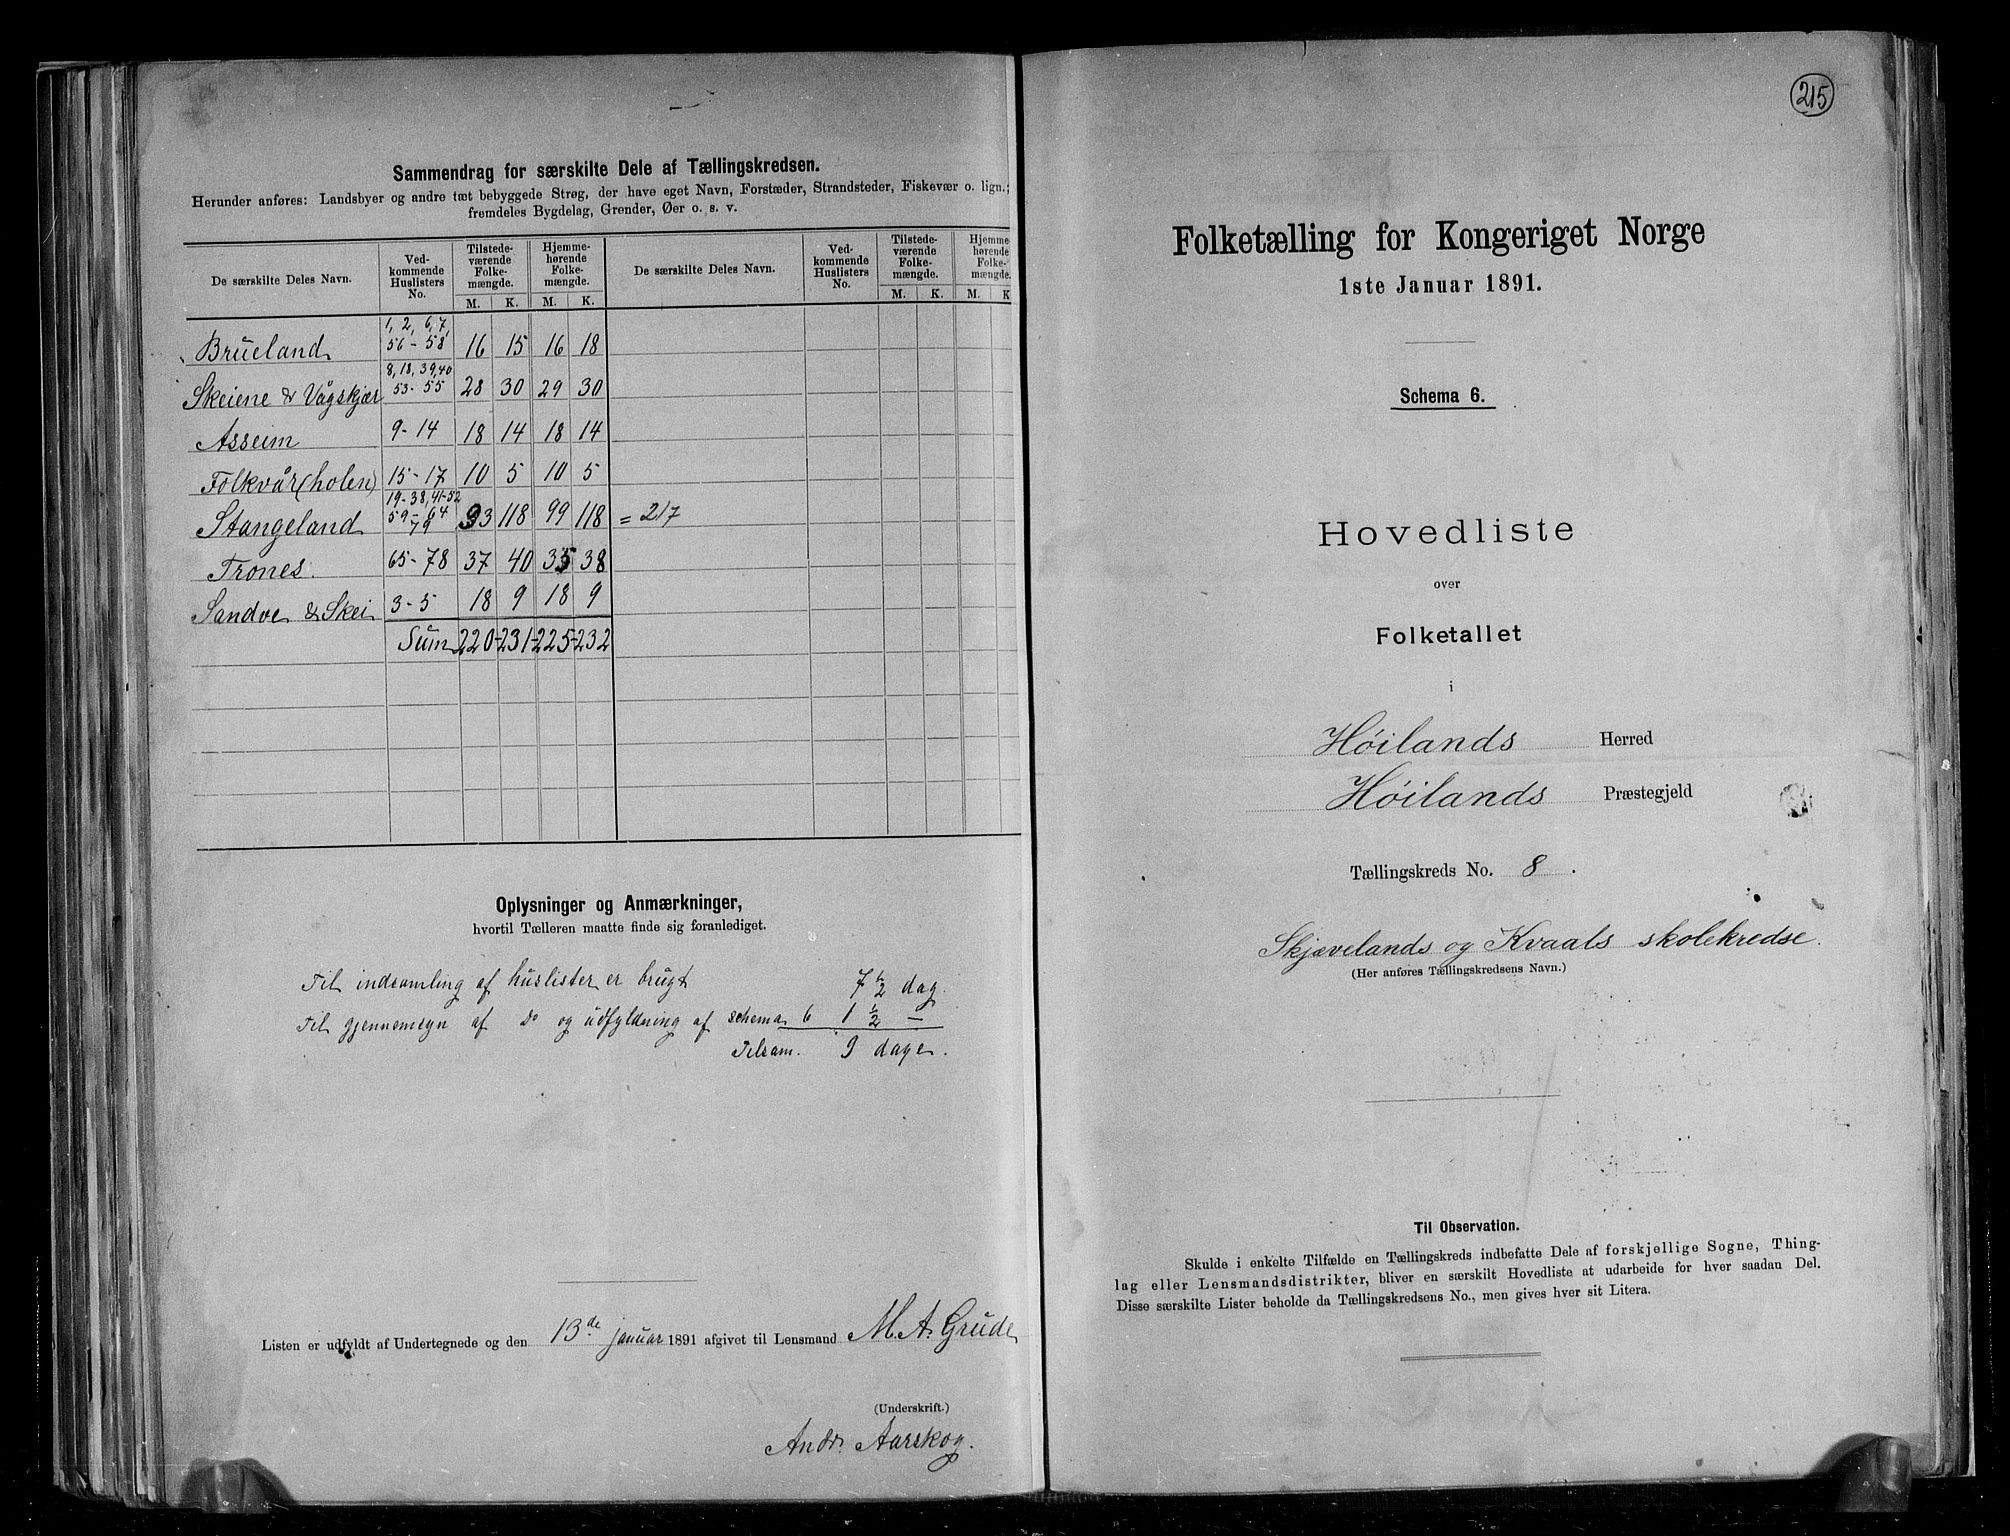 Sammendrag for særskilte Dele af Tællingskredsen.
Herunder anføres: Landsbyer og andre tæt bebyggede Strøg, der have eget Navn, Forstæder, Strandsteder, Fiskevær o. lign.;
fremdeles Bygdelag, Grender, Øer o. s. v.
De særskilte Deles Navn. Ved-kommende Huslisters No. Tilstede-værende Folke-mængde. Hjemme-hørende Folke-mængde. De særskilte Deles Navn. Ved-kommende Huslisters No. Tilstede-værende Folke-mængde. Hjemme-hørende Folke-mængde.
M. K. M. K. M. K. M. K
Brueland 1, 2, 6, 7, 56 - 58 16 15 16 18
Skeiene & Vågskjær 8, 18, 39, 40 53 - 55 28 30 29 30
Asseim 9 - 14 18 14 18 14
Folkvår (holen) 15 - 17 10 5 10 5
Stangeland 19 - 38, 41 - 52 59 - 64 79 93 118 99 118 = 217
Trones 65 - 78 37 40 35 38
Sandve & Skei 3 - 5 18 9 18 9
Sum 220 - 231 - 225 - 232
Oplysninger og Anmærkninger,
hvortil Tælleren maatte finde sig foranlediget.
Til indsamling af huslister er brugt 7 1/2 dag
Til gjennemsyn af Do og udfyldning af schema 6 1 1/2 —
Tilsam. 9 dage.
Listen er udfyldt af Undertegnede og den 13de januar 1891 afgivet til Lensmand M. A. Grude
(Underskrift.)
Andr. Aarskog.
215
Folketælling for Kongeriget Norge
1ste Januar 1891.
Schema 6.
Hovedliste
over
Folketallet
i
Høilands Herred
Høilands Præstegjeld
Tællingskreds No. 8.
Skjævelands og Kvaals skolekredse.
(Her anføres Tællingskredsens Navn.)
Til Observation.
Skulde i enkelte Tilfælde en Tællingskreds indbefatte Dele af forskjellige Sogne, Thing-
lag eller Lensmandsdistrikter, bliver en særskilt Hovedliste at udarbeide for hver saadan Del.
Disse særskilte Lister beholde da Tællingskredsens No., men gives hver sit Litera.